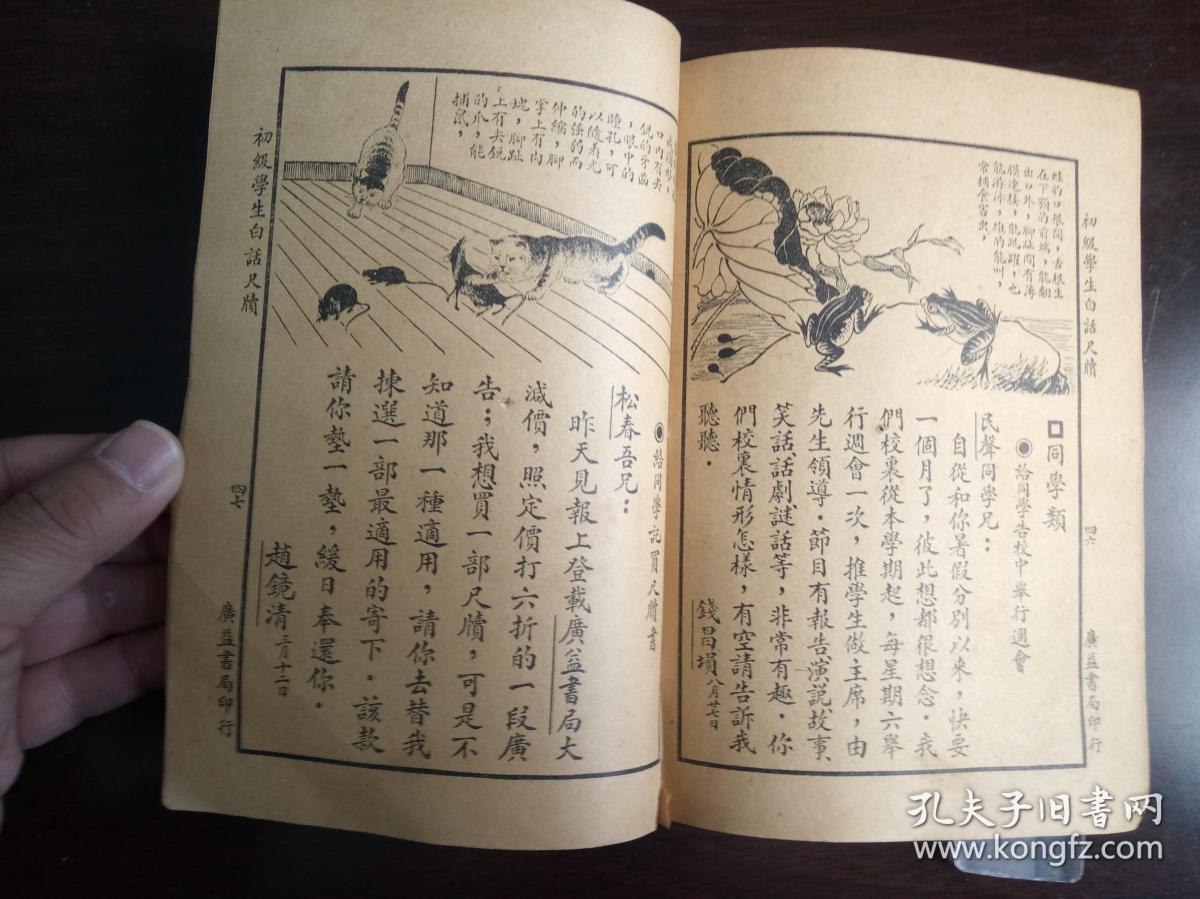 初級學生白話尺牘
四六
廣益書局印行
蛙的口很闊，舌根生
在下顎的前端，能翻
出口外，腳趾間有薄
膜連接，能跳躍，也
能游泳，雄的能叫，
常捕食害虫，
同學類
給同學告校中舉行週會
民聲同學兄：
自從和你暑假分別以來，快要
一個月了，彼此想都很想念．我
們校裏從本學期起，每星期六舉
行週會一次，推學生做主席，由
先生領導．節目有報告演說故事、
笑話話劇謎話等，非常有趣．你
們校裏情形怎樣，有空請告訴我
聽聽．
錢昌塤八月廿七日
口內有尖
銳的牙齒
，眼中的
瞳孔，可
以隨着光
的強弱而
伸縮，腳
掌上有肉
塊，腳趾
上有尖銳
的爪，能
捕鼠，
給同學託買尺牘書
松春吾兄：
昨天見報上登載廣益書局大
減價，照定價打六折的一段廣
告；我想買一部尺牘，可是不
知道那一種適用，請你去替我
揀選一部最適用的寄下．該款
請你墊一墊，緩日奉還你．
趙鏡清三月十二日
初級學生白話尺牘
四七
廣益書局印行
孔夫子旧书网
www.kongfz.com